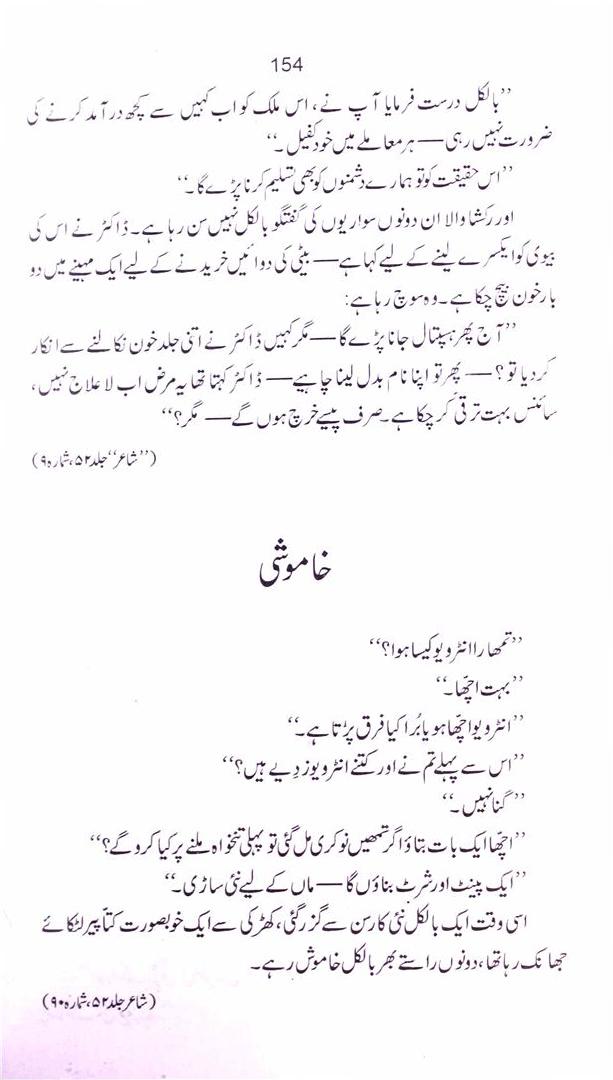 154
’’بالکل درست فرمایا آپ نے، اس ملک کو اب کہیں سے کچھ در آمد کرنے کی
ضرورت نہیں رہی — ہر معاملے میں خود کفیل۔‘‘
’’اس حقیقت کو تو ہمارے دشمنوں کو بھی تسلیم کرنا پڑے گا۔‘‘
اور رکشا والا ان دونوں سواریوں کی گفتگو بالکل نہیں سن رہا ہے۔ ڈاکٹر نے اس کی
بیوی کو ایکسرے لینے کے لیے کہا ہے — بیٹی کی دوائیں خریدنے کے لیے ایک مہینے میں دو
بار خون بیچ چکا ہے۔ وہ سوچ رہا ہے:
’’آج پھر ہسپتال جانا پڑے گا — مگر کہیں ڈاکٹر نے اتنی جلد خون نکالنے سے انکار
کر دیا تو؟ — پھر تو اپنا نام بدل لینا چاہیے — ڈاکٹر کہتا تھا یہ مرض اب لا علاج نہیں،
سائنس بہت ترقی کر چکا ہے۔ صرف پیسے خرچ ہوں گے — مگر؟‘‘
(’’شاعر‘‘ جلد ۵۲، شمارہ ۹)
خاموشی
’’تمھارا انٹرویو کیسا ہوا؟‘‘
’’بہت اچھّا۔‘‘
’’انٹرویو اچھّا ہو یا بُرا کیا فرق پڑتا ہے۔‘‘
’’اس سے پہلے تم نے اور کتنے انٹرویوز دیے ہیں؟‘‘
’’گنا نہیں۔‘‘
’’اچھّا ایک بات بتاؤ اگر تمھیں نوکری مل گئی تو پہلی تنخواہ ملنے پر کیا کرو گے؟‘‘
’’ایک پینٹ اور شرٹ بناؤں گا — ماں کے لیے نئی ساڑی۔‘‘
اسی وقت ایک بالکل نئی کار سن سے گزر گئی، کھڑکی سے ایک خوبصورت کتّا پیر لٹکائے
جھانک رہا تھا، دونوں راستے بھر بالکل خاموش رہے۔
(شاعر جلد ۵۲، شمارہ ۹۰)